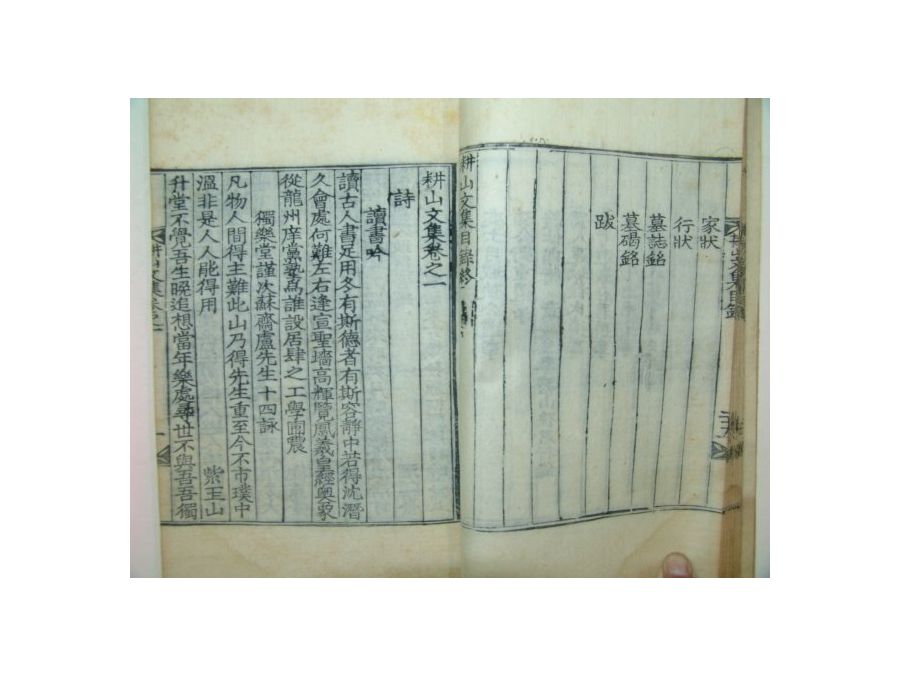 耕山文集目錄
家狀
行狀
墓誌銘
墓碣銘
跋
耕山文集目錄終
耕山文集卷之一
詩
讀書吟
讀古人書足用冬有斯德者有斯容靜中若得沈潛
久會處何難左右逢宣聖墻高輝覽鳳羲皇經奧象
從龍州庠黨塾爲誰設居肆之工學圃農
獨樂堂謹次蘇齋盧先生十四詠
凡物人間得主難此山乃得先生重至今不市璞中
溫非是人人能得用
紫玉山
升堂不覺吾生晩追想當年樂處尋世不與吾吾獨
耕山文集卷之一
一